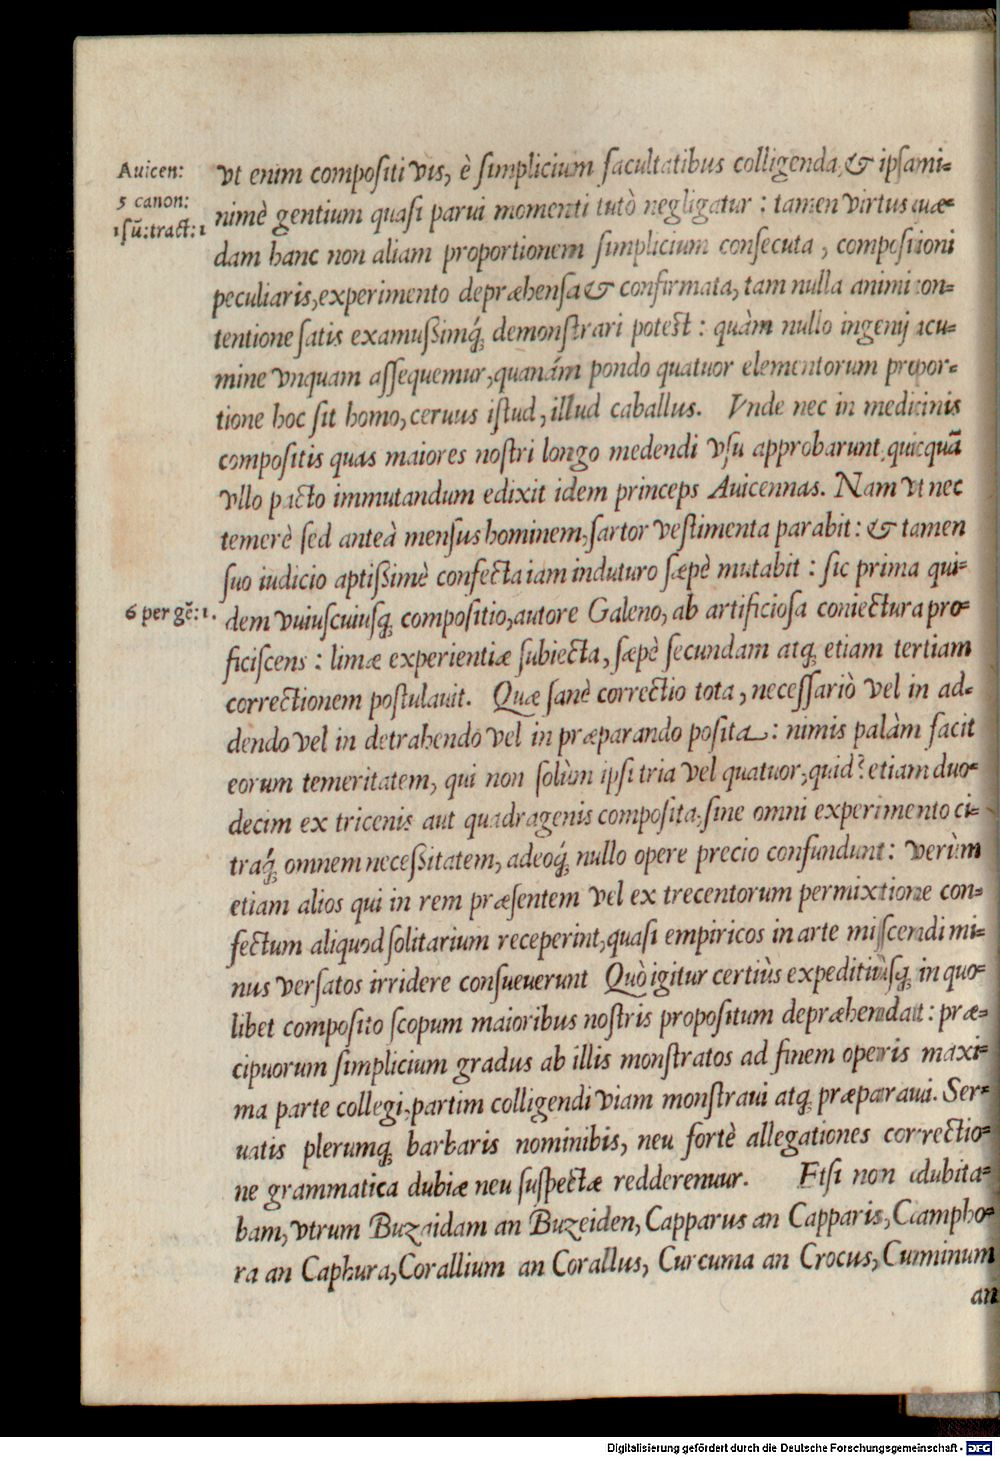 Auicen:
5 canon:
1ſũ:tract:1
vt enim compoſiti vis, è ſimplicium facultatibus colligenda, & ipſami-
nimè gentium quaſi parui momenti tutò negligatur : tamen virtus quæ-
dam hanc non aliam proportionem ſimplicium conſecuta , compoſitioni
peculiaris, experimento depræhenſa & confirmata, tam nulla animi con-
tentione ſatis examuſsimq́ꝫ demonſtrari poteſt : quàm nullo ingenij acu-
mine vnquam aſſequemur, quanám pondo quatuor elementorum propor-
tione hoc ſit homo, ceruus iſtud, illud caballus. Vnde nec in medicinis
compoſitis quas maiores noſtri longo medendi vſu approbarunt, quicquã
vllo pacto immutandum edixit idem princeps Auicennas. Nam vt nec
temerè ſed anteà menſus hominem, ſartor veſtimenta parabit : & tamen
ſuo iudicio aptiſsimè confecta iam induturo ſæpè mutabit : ſic prima qui-
6 per gẽ: 1.
dem vuiuſcuiuſqꝫ compoſitio, autore Galeno, ab artificioſa coniectura pro-
ficiſcens : limæ experientiæ ſubiecta, ſæpè ſecundam atqꝫ etiam tertiam
correctionem poſtulauit. Quæ ſanè correctio tota, neceſſariò vel in ad-
dendo vel in detrahendo vel in præparando poſita : nimis palàm facit
eorum temeritatem, qui non ſolùm ipſi tria vel quatuor, quid? etiam duo-
decim ex tricenis aut quadragenis compoſita, ſine omni experimento ci-
traq́ꝫ omnem neceſsitatem, adeoq́ꝫ nullo opere precio confundunt : verùm
etiam alios qui in rem præſentem vel ex trecentorum permixtione con-
fectum aliquod ſolitarium receperint, quaſi empiricos in arte miſcendi mi-
nus verſatos irridere conſueuerunt Quò igitur certiùs expeditiùſqꝫ in quo-
libet compoſito ſcopum maioribus noſtris propoſitum depræhendat : præ-
cipuorum ſimplicium gradus ab illis monſtratos ad finem operis maxi-
ma parte collegi, partim colligendi viam monſtraui atqꝫ præparaui. Ser-
uatis plerumqꝫ barbaris nominibis, neu fortè allegationes correctio-
ne grammatica dubiæ neu ſuſpectæ redderenuur. Etſi non dubita-
bam, vtrum Buzaidam an Buzeiden, Capparus an Capparis, Campho-
ra an Caphura, Corallium an Corallus, Curcuma an Crocus, Cuminum
an
Digitalisierung gefördert durch die Deutsche Forschungsgemeinschaft - DFG